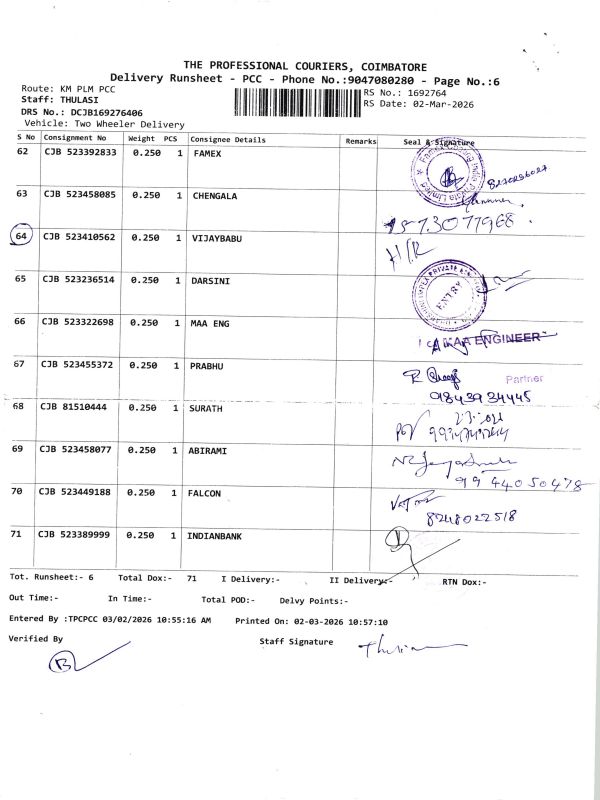 THE PROFESSIONAL COURIERS, COIMBATORE
Delivery Runsheet - PCC - Phone No.:9047080280 - Page No.:6
Route: KM PLM PCC
RS No.: 1692764
Staff: THULASI
RS Date: 02-Mar-2026
DRS No.: DCJB169276406
Vehicle: Two Wheeler Delivery
S No Consignment No Weight PCS Consignee Details Remarks Seal & Signature
62 CJB 523392833 0.250 1 FAMEX
63 CJB 523458085 0.250 1 CHENGALA
64 CJB 523410562 0.250 1 VIJAYBABU H/R
65 CJB 523236514 0.250 1 DARSINI ENTRY
66 CJB 523322698 0.250 1 MAA ENG MAA ENGINEER
67 CJB 523455372 0.250 1 PRABHU Partner
9843934445
68 CJB 81510444 0.250 1 SURATH
69 CJB 523458077 0.250 1 ABIRAMI
9944050478
70 CJB 523449188 0.250 1 FALCON
8248022518
71 CJB 523389999 0.250 1 INDIANBANK
Tot. Runsheet:- 6 Total Dox:- 71 I Delivery:- II Delivery:- RTN Dox:-
Out Time:- In Time:- Total POD:- Delvy Points:-
Entered By :TPCPCC 03/02/2026 10:55:16 AM Printed On: 02-03-2026 10:57:10
Verified By Staff Signature